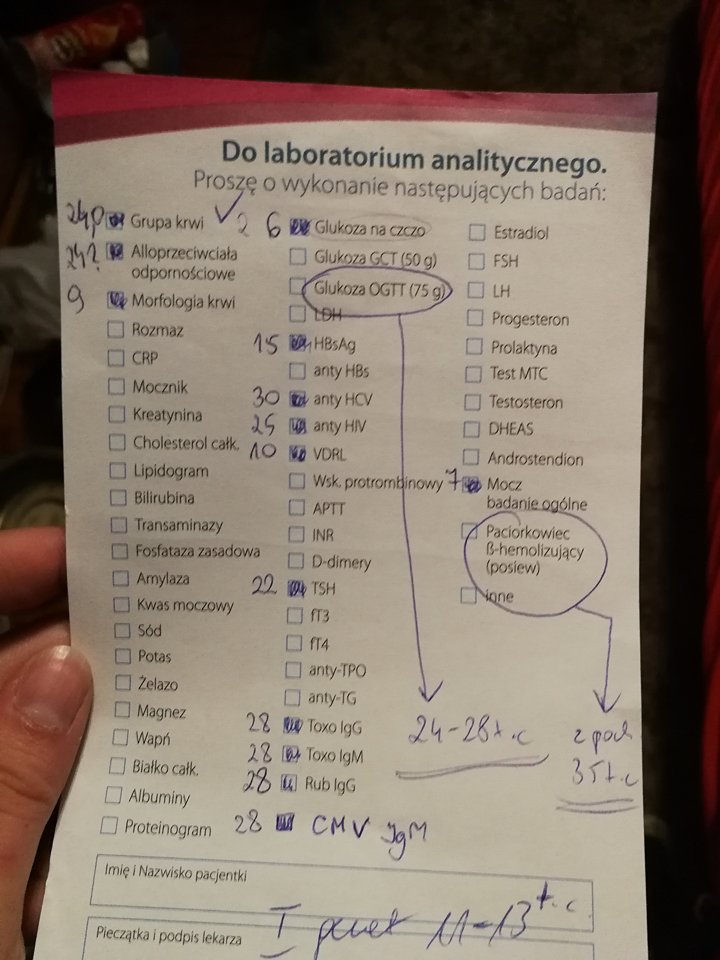 Do laboratorium analitycznego.
Proszę o wykonanie następujących badań:
Grupa krwi
24? Alloprzeciwciała
odpornościowe
9 Morfologia krwi
Rozmaz
CRP
Mocznik
Kreatynina
Cholesterol całk.
Lipidogram
Bilirubina
Transaminazy
Fosfataza zasadowa
Amylaza
Kwas moczowy
Sód
Potas
Żelazo
Magnez
Wapń
Białko całk.
Albuminy
Proteinogram
6 Glukoza na czczo
Glukoza GCT (50 g)
Glukoza OGTT (75 g)
LDH
15 HBsAg
anty HBs
30 anty HCV
25 anty HIV
10 VDRL
Wsk. protrombinowy
APTT
INR
D-dimery
22 TSH
fT3
fT4
anty-TPO
anty-TG
28 Toxo IgG
28 Toxo IgM
28 Rub IgG
28 CMV IgM
Estradiol
FSH
LH
Progesteron
Prolaktyna
Test MTC
Testosteron
DHEAS
Androstendion
7 Mocz
badanie ogólne
Paciorkowiec
ß-hemolizujący
(posiew)
inne
24-28 t.c
35 t.c
Imię i Nazwisko pacjentki
Pieczątka i podpis lekarza
I 11-13 t.c.